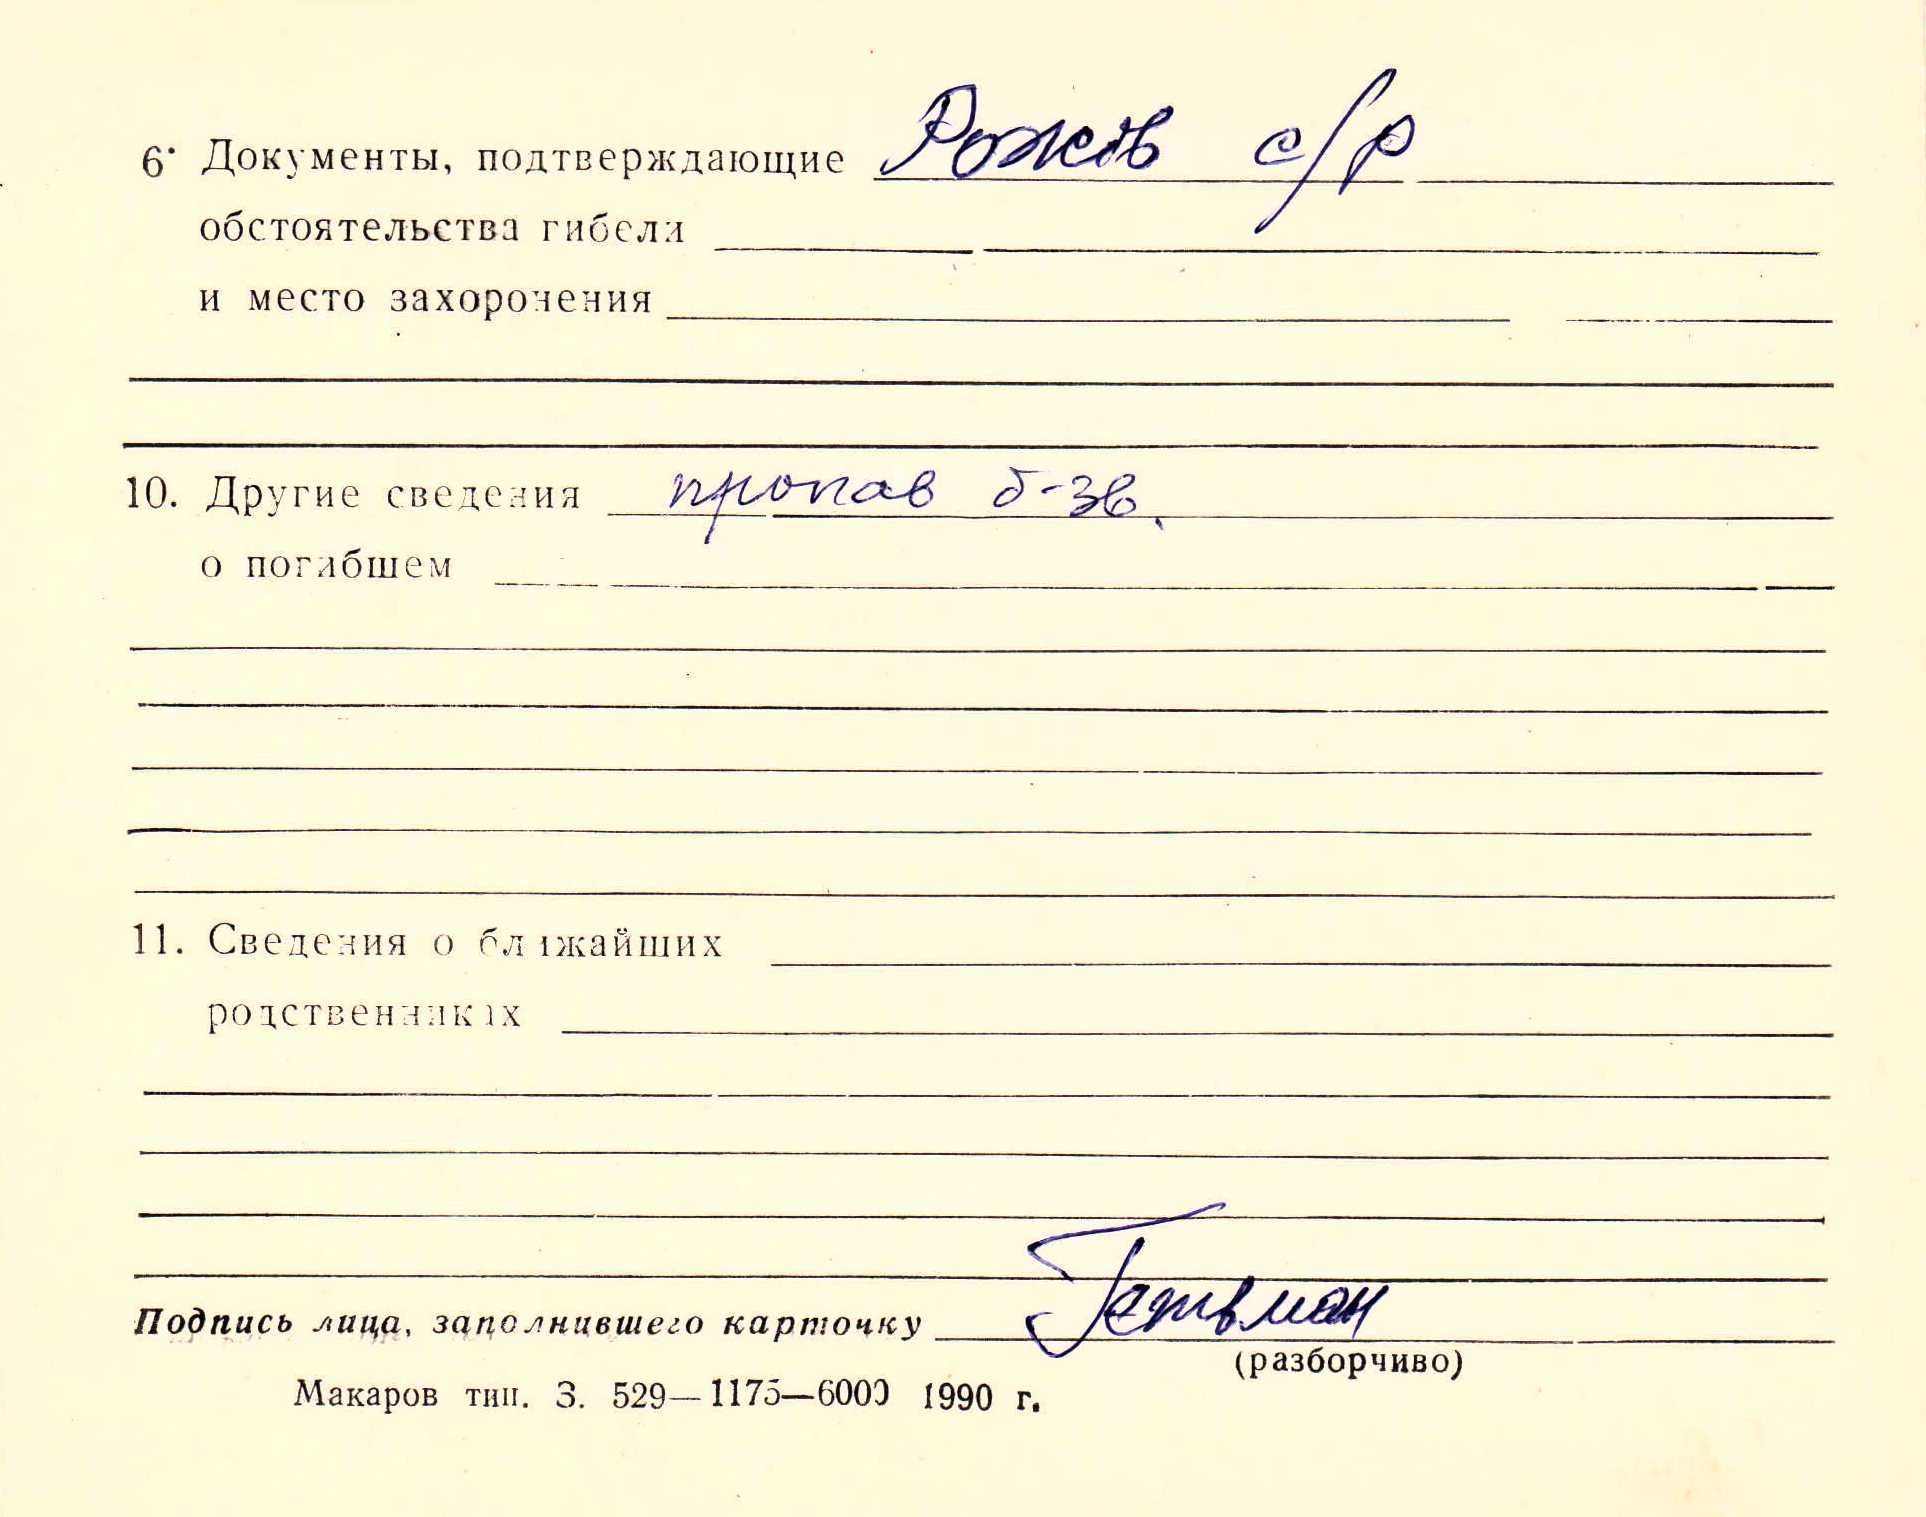 6. Документы, подтверждающие Рожів с/р
обстоятельства гибели
и место захоронения
10. Другие сведения пропав б-зв.
о погибшем
11. Сведения о ближайших
родственниках
Подпись лица, заполнившего карточку
(разборчиво)
Макаров тип. З. 529—1175—6000 1990 г.